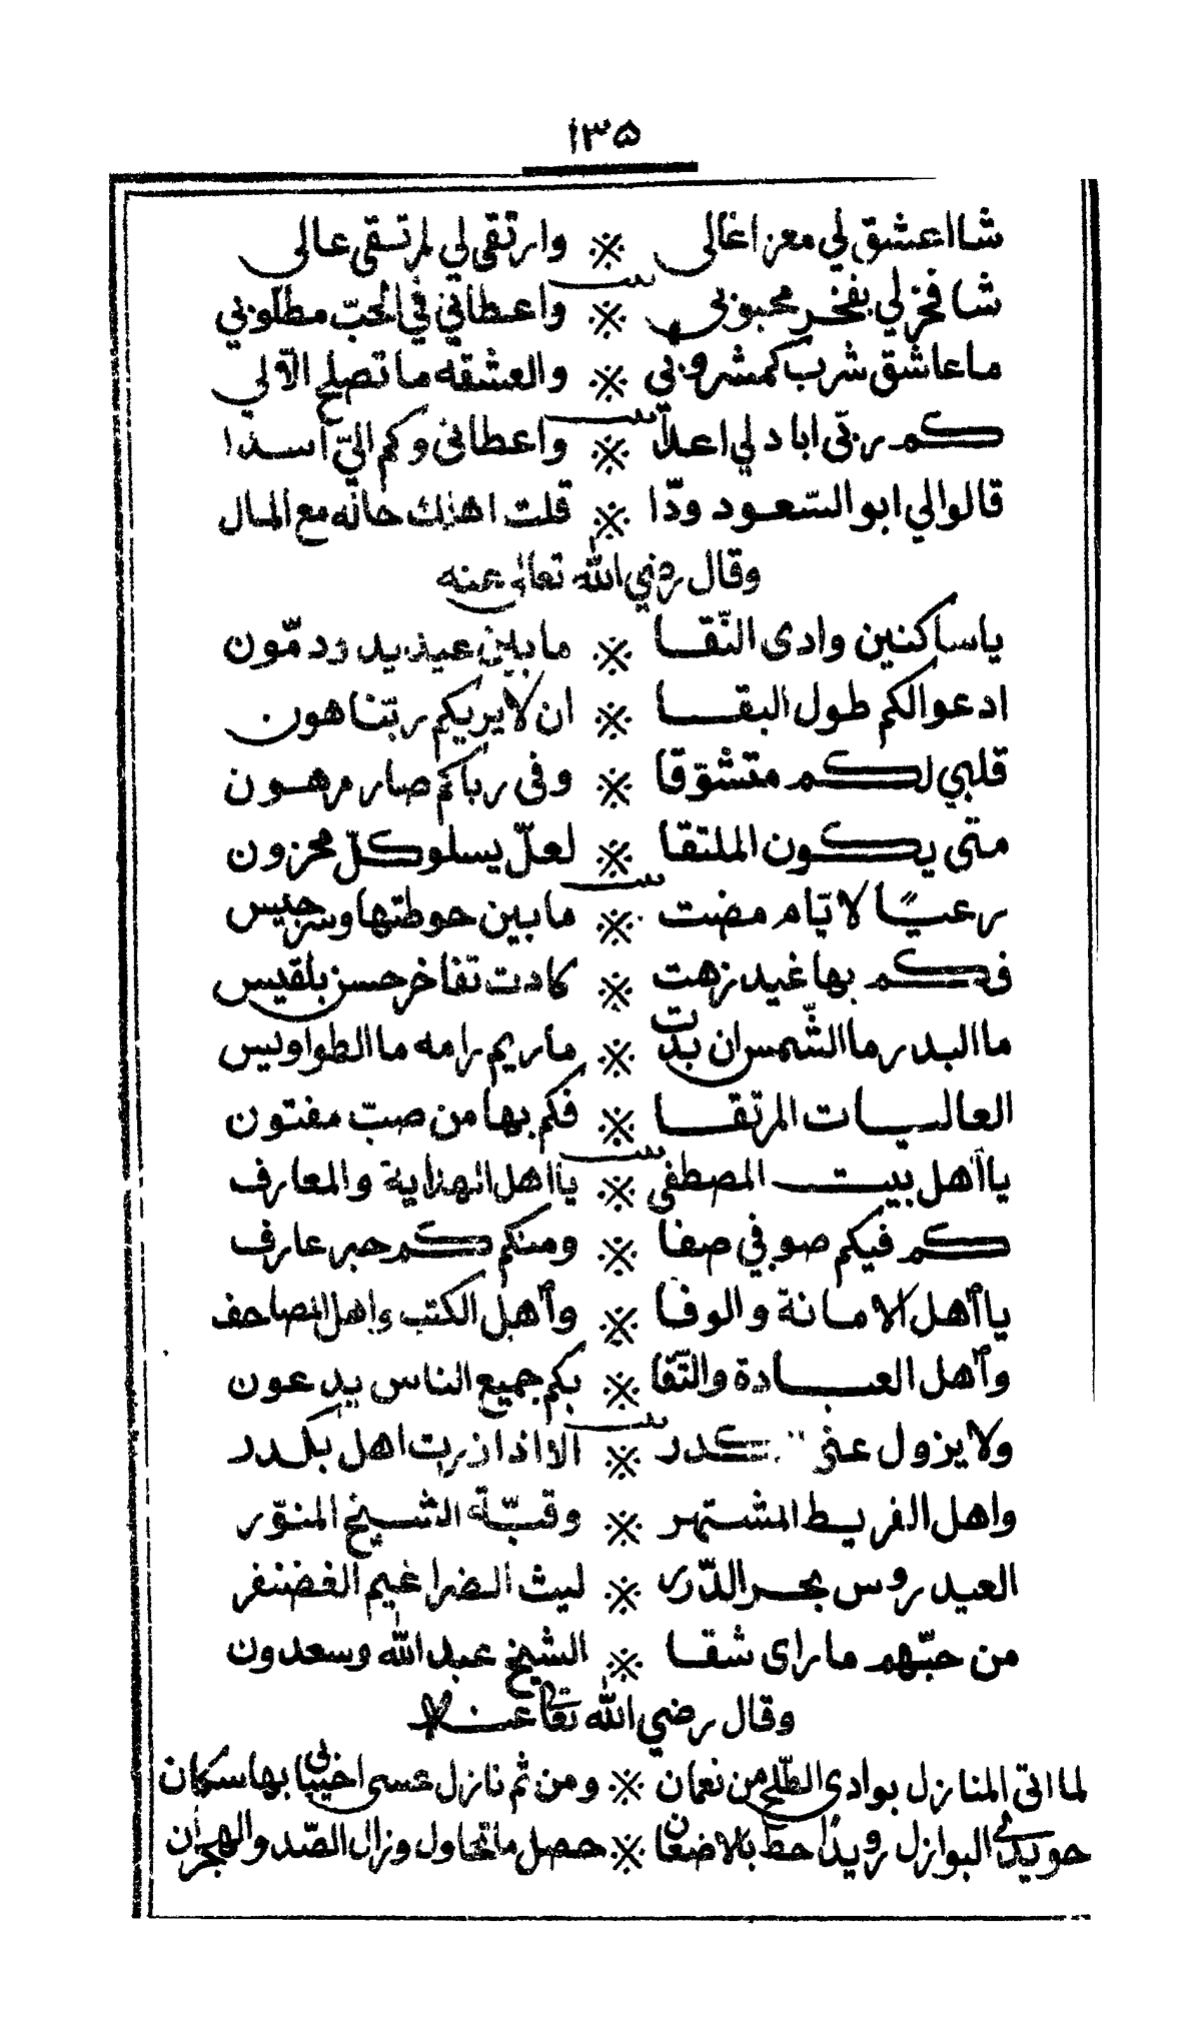 ١٣٥
شااعشق لي معزاغالى ※ وارتقى لي لمرتقى عالى
شافخر لي بفخر محبوبي ※ واعطاني في الحبّ مطلوبي
ماعاشق شرب كمشروبي ※ والعشقه ماتصلح الّالي
كم ربّى اباد لي اعدا ※ واعطانى وكم اليّ اسدا
قالوالي ابوالسّعود ودّا ※ قلت اهلك حالّه مع المال
وقال رضي الله تعالى عنه
ياساكنين وادى النّقا ※ مابين عيديد ودمّون
ادعوالكم طول البقا ※ ان لايريكم ربّناهون
قلبي لكم متشوّقا ※ وفى رباكم صار مرهون
متى يكون الملتقا ※ لعلّ يسلو كلّ محزون
رعيًا لايّام مضت ※ مابين حوطتها وسرجيس
فكم بهاغيد زهت ※ كادت تفاخر حسن بلقيس
ماالبدر ماالشّمس ان بدت ※ ماريم رامه ماالطواويس
العاليات المرتقا ※ فكم بها من صبّ مفتون
ياأهل بيت المصطفى ※ ياأهل الهداية والمعارف
كم فيكم صوفي صفا ※ ومنكم كم حبر عارف
ياأهل الامانة والوفا ※ وأهل الكتب واهل المصاحف
وأهل العبادة والتّقا ※ بكم جميع الناس يدعون
ولايزول عنى كدر ※ الااذازرت اهل بكدر
واهل الفريط المشتهر ※ وقبّة الشيخ المنوّر
العيدروس بحر الدّرر ※ ليث الضراغيم الغضنفر
من حبّهم ماراى شقا ※ الشيخ عبدالله وسعدون
وقال رضي الله تعالى عنه
لمااتى المنازل بوادى الطّلح من نعمان ※ ومن ثم نازل عسى احبيبابي بهاسكان
حويدي البوازل رويدًا حط بالاضعان ※ حصل ماتحاول وزال الصّد والهجران